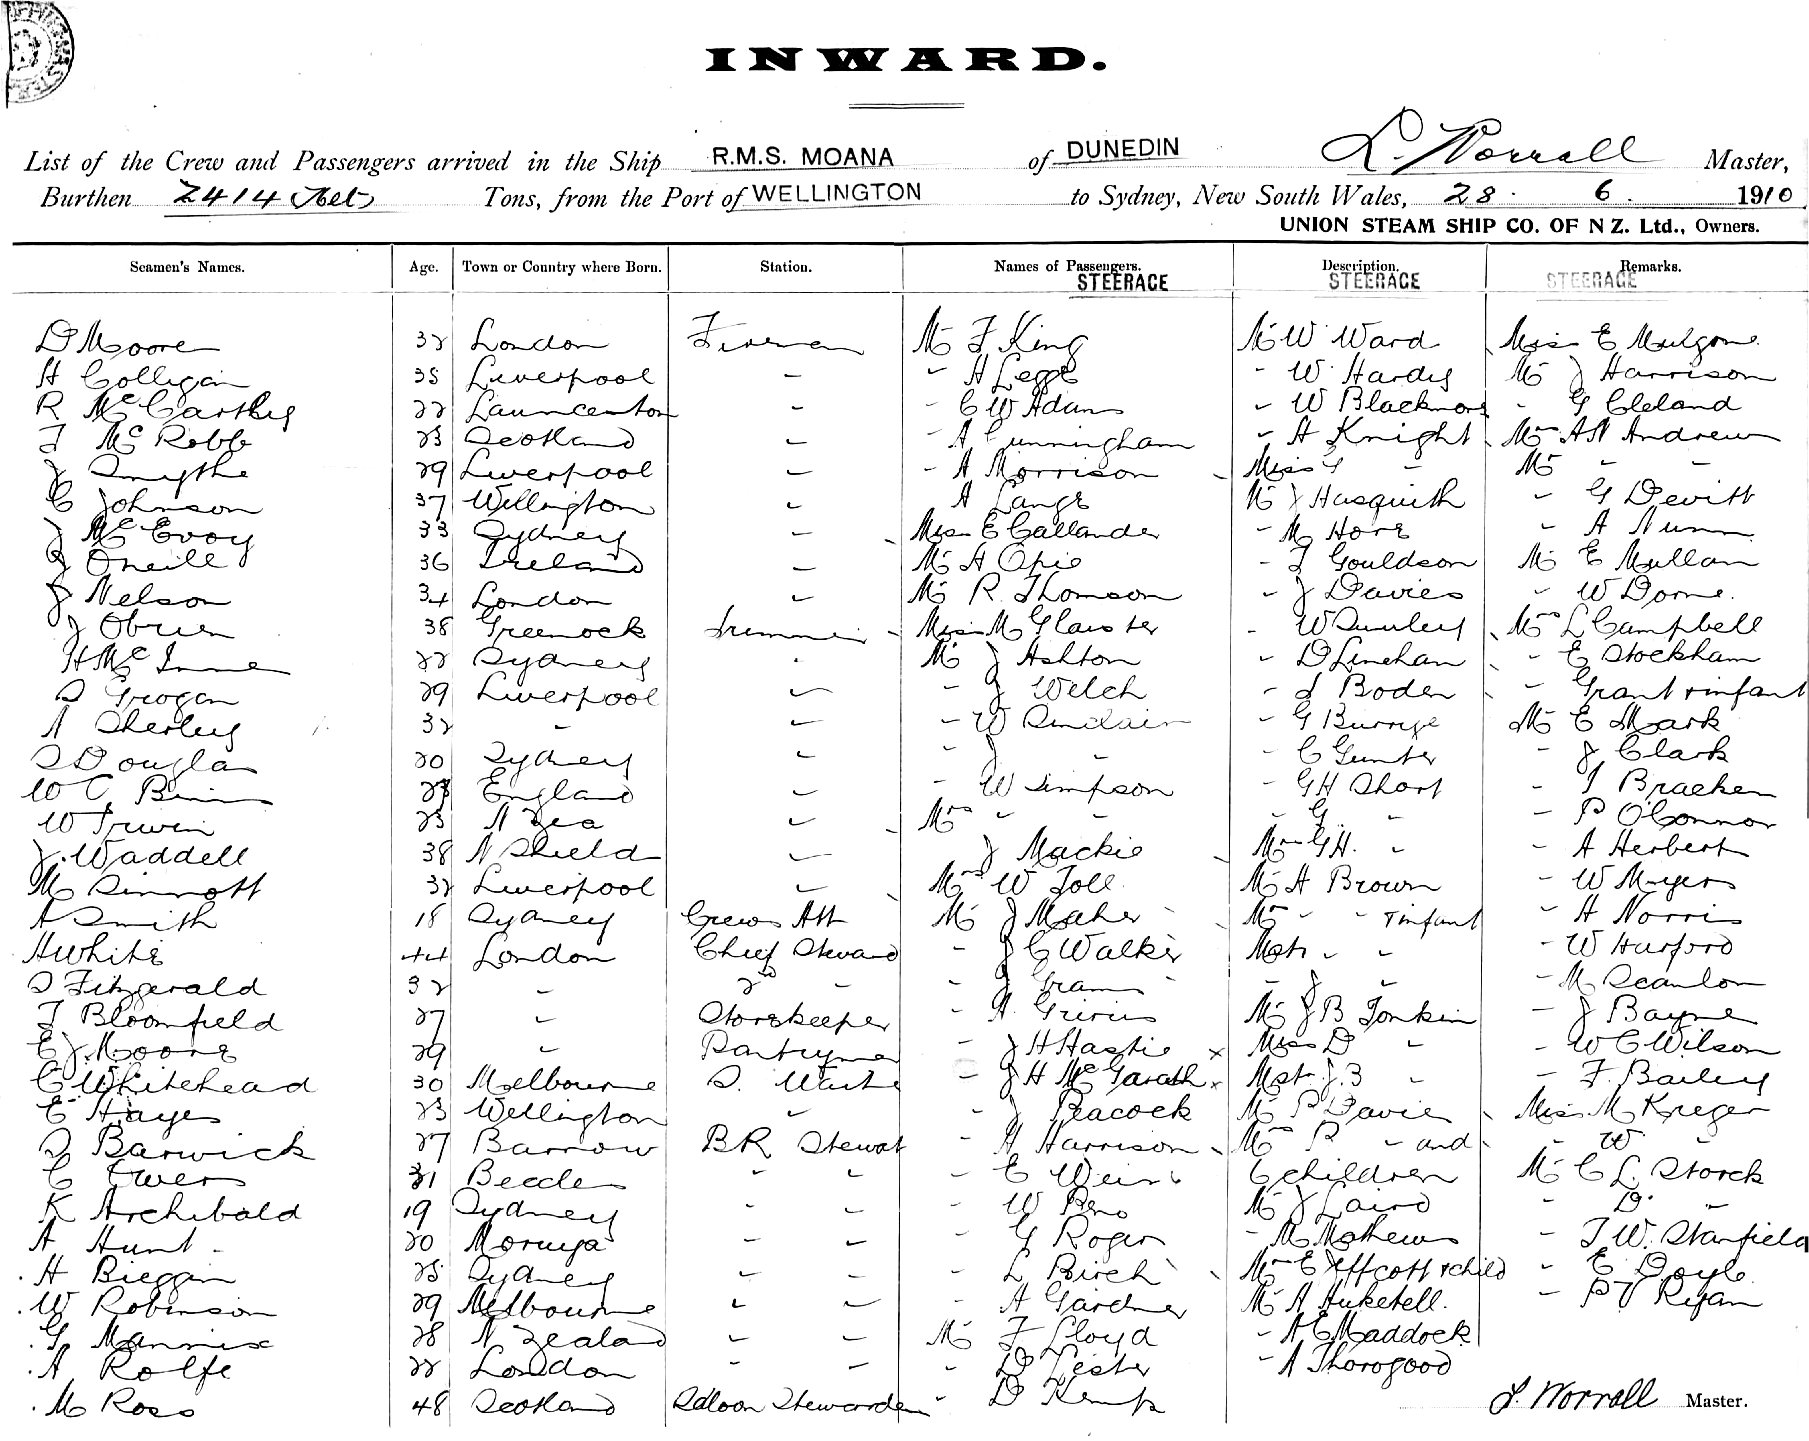 INWARD.
List of the Crew and Passengers arrived in the Ship R.M.S. MOANA of DUNEDIN L. Worrall Master,
Burthen 2414 Tons, from the Port of WELLINGTON to Sydney, New South Wales, 28 . 6 . 1910
UNION STEAM SHIP CO. OF N Z. Ltd., Owners.
Seamen's Names. Age. Town or Country where Born. Station. Names of Passengers. Description. Remarks.
STEERAGE STEERAGE STEERAGE
D Moore 32 London Fireman Mr F King Mr W Ward Miss E
H Colligan 35 Liverpool - - A Legge - W Hardy Mr J Harrison
R McCarthy 22 Launceston - - C W Adams - W Blackmore - G Cleland
J McRobb 23 Scotland - - A Cunningham - A Knight Mrs Andrew
J Smythe 29 Liverpool - - A Morrison Miss G - Mr - -
C Johnson 37 Wellington - A Lange Mr J Hasquith - G Devitt
J McEvoy 33 Sydney - Miss E Callander - M Hore - A Nunn
J Oneill 36 Ireland - Mr A Opie - J Gouldson Mr E Mullan
J Nelson 34 London - Mr R Thomson - J Davies - W
J Obrien 38 Greenock Trimmer Miss M Glaister - W Mrs L Campbell
H Mc 22 Sydney - Mr J Ashton - D Linehan - E Stockham
S Grogan 29 Liverpool - - J Welch - S Boden - Grant & infant
A Sherley 32 - - - W Sinclair - G Mr E Mark
S Douglas 20 Sydney - - J - - C Gunter - J Clark
W C 23 England - - W Simpson - G H Short - T Bracken
W Irwin 23 N Zea - Mrs - - - G - - P OConnor
J. Waddell 38 N Shield - J Mackie Mrs G H. - - A Herbert
M Sinnott 32 Liverpool - Mrs W Toll Mr A Brown - W Myers
A Smith 18 Sydney Crews Att Mr J Maher Mrs - - & infant - A Norris
A White 44 London Chief Steward - J C Walker Mstr - - - W Harford
S Fitzgerald 32 - 2nd - - J - J - - M Scanlon
F Bloomfield 27 - Storekeeper - A. Mr J B Tonkin - J Bayne
E J. Moore 29 - Pantryman - J H Hastie Miss D - - W C Wilson
C Whitehead 30 Melbourne S. - J H McGarath Mstr J. B - - F. Bailey
E Hayes 23 Wellington - - J Peacock Mr P Davies Miss M Kreger
S Barwick 27 Barrow B R Steward - A Harrison Mrs P - and - W -
C Ewers 31 Beccles - - - E Weir 6 children Mr C L. Storck
K Archibald 19 Sydney - - - W Mr J Laird - D. -
A Hunt 20 Moruya - - - G Roger - M Mathews - T W. Stanfield
H 25 Sydney - - - L Birch Mrs E Jeffcott & child - E Doyle
W Robinson 29 Melbourne - - - A Gardner Mr A Huketell. - P J Ryan
G Mannix 28 N Zealand - - Mr F Lloyd - A E Maddock
A Rolfe 22 London - - - D Lester - A Thorogood
M Ross 48 Scotland Saloon Stewardess - D Kemp
L. Worrall Master.